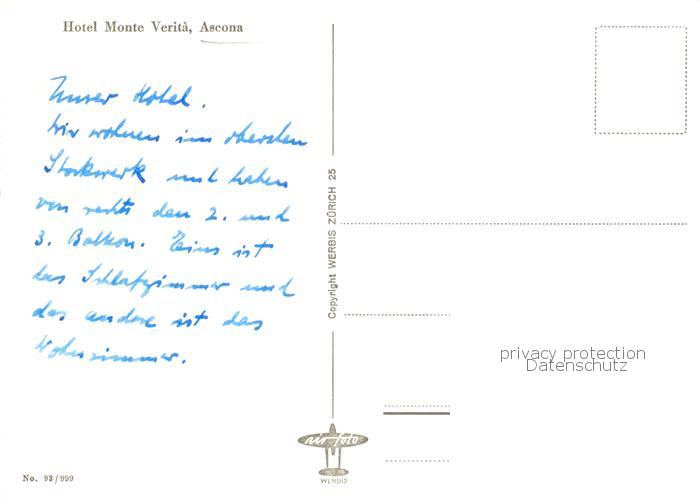 Hotel Monte Verità, Ascona
Unser Hotel.
Wir wohnen im obersten
Stockwerk und haben
von rechts den 2. und
3. Balkon. Eins ist
das Schlafzimmer und
das andere ist das
Wohnzimmer.
Copyright WERBIS ZÜRICH 25
privacy protection
Datenschutz
air foto
WERBIS
No. 93/999